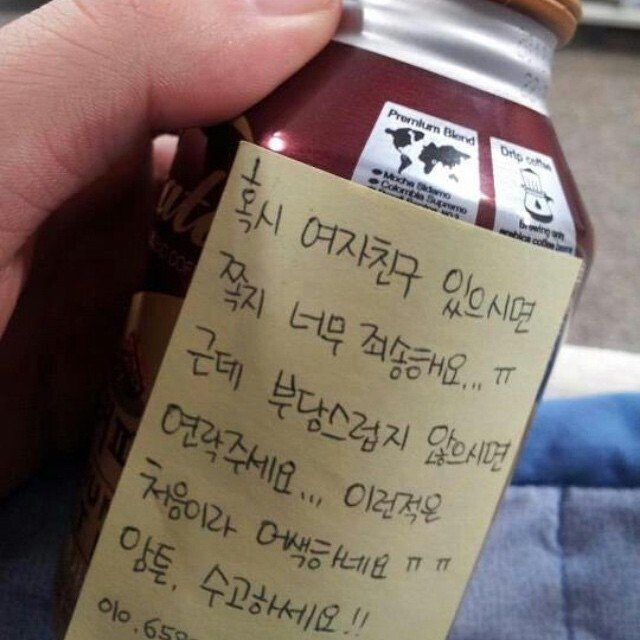 Premium Blend
Drip coffee
혹시 여자친구 있으시면
쪽지 너무 죄송해요... ㅠ
근데 부담스럽지 않으시면
연락주세요... 이런적은
처음이라 어색하네요 ㅠㅠ
암튼, 수고하세요!!